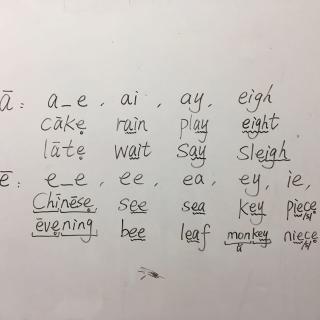 ā: a_e, ai, ay, eigh
cāke rain play eight
lāte wait say sleigh
ē: e_e, ee, ea, ey, ie,
Chinēse, see sea key piece
/s/
ēvening bee leaf monkey niece
/s/